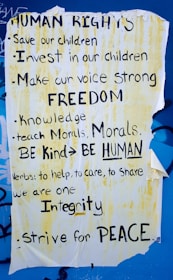 HUMAN RIGHTS
• Save our children
• Invest in our children
• Make our voice strong
FREEDOM
• Knowledge
• teach Morals, Morals.
BE Kind → BE HUMAN
Verbs: to help, to care, to share
we are one
Integrity
• Strive for PEACE